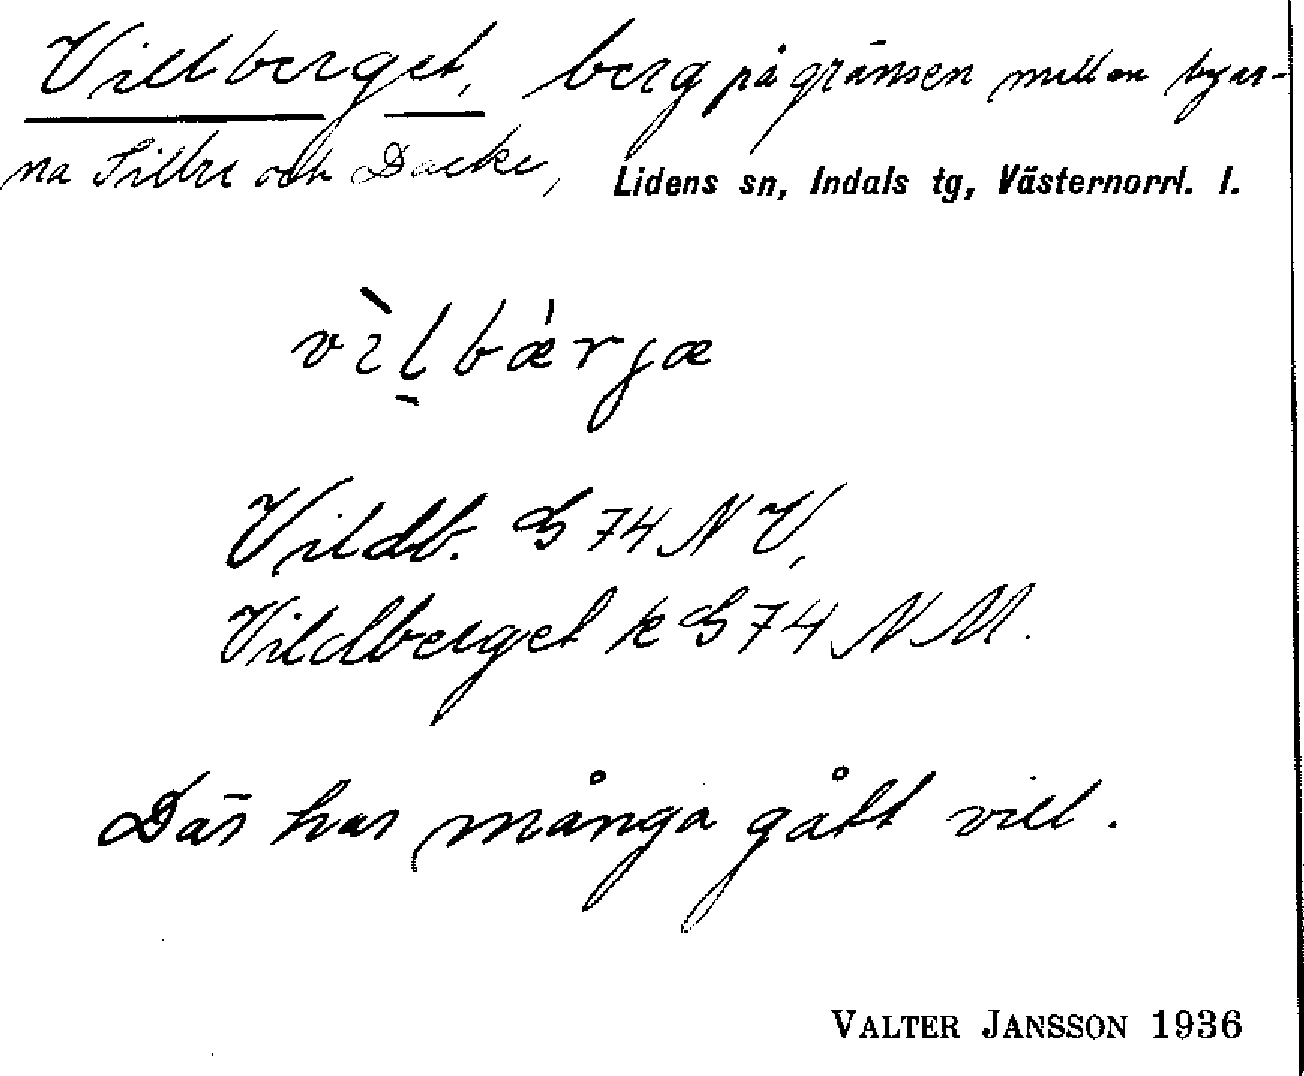 Villberget, berg på gränsen mellan byar-
na Sillre och Dacke, Lidens sn, Indals tg, Västernorrl. l.
vìl̠bǽrjæ
Vildb. G 74 NV,
Vildberget k G 74 NM.
Där har många gått vill.
VALTER JANSSON 1936